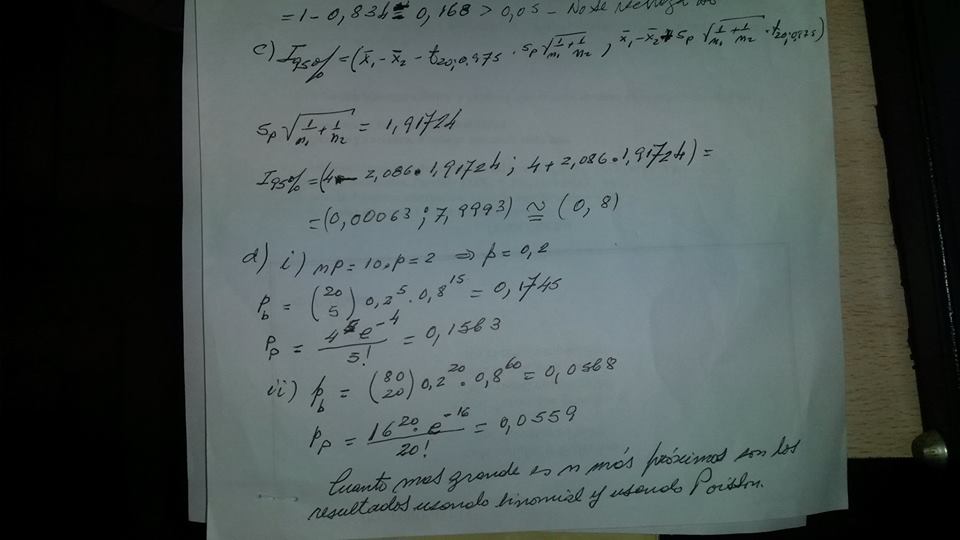 = 1 - 0,834 = 0,168 > 0,05 - No se
c) I95% = (x̄1 - x̄2 - t20;0.975 · sp√(1/n1 + 1/n2) , x̄1 - x̄2 + sp√(1/n1 + 1/n2) · t20;0.975)
sp√(1/n1 + 1/n2) = 1,91724
I95% = (4 - 2,086 · 1,91724 ; 4 + 2,086 · 1,91724) =
= (0,00063 ; 7,9993) ≅ (0, 8)
d) i) np = 10·p = 2 ⇒ p = 0,2
Pb = (20 5) 0,2^5 · 0,8^15 = 0,1745
Pp = 4^5 e^-4 / 5! = 0,1563
ii) Pb = (80 20) 0,2^20 · 0,8^60 = 0,0568
Pp = 16^20 · e^-16 / 20! = 0,0559
Cuanto mas grande es n más próximos son los
resultados usando binomial y usando Poisson.